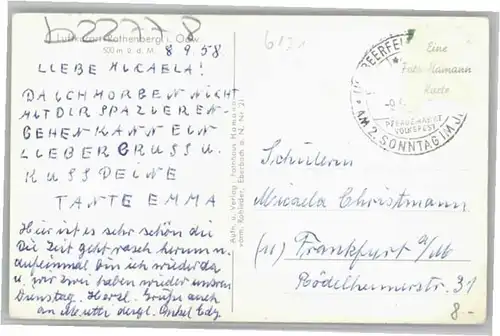 622778
Luftkurort Rothenberg i. Odw.
500 m ü. d. M.
8 9 58
LIEBE MICAELA!
DA ICH MORGEN NICHT
MIT DIR SPAZIEREN-
GEHEN KANN EIN
LIEBER GRUSS U.
KUSS DEINE
TANTE EMMA
Hier ist es sehr schön die
Die Zeit geht rasch herum u.
aufeinmal bin ich wieder da
u. wir zwei haben wieder unseren
Dienstag. Herzl. Grüße auch
an Mutti dergl. Onkel Edg.
Apth. u. Verlag: Fotohaus Hamann
vorm. Rohleder, Eberbach a. N. Nr. 21
BEERFEL
PFERDEMARKT
VOLKSFEST
AM 2. SONNTAG IM J.
Eine
Foto-Hamann
Karte
Schülerin
Micaela Christmann
(16) Frankfurt a/M
Rödelheimerstr. 31
8.-